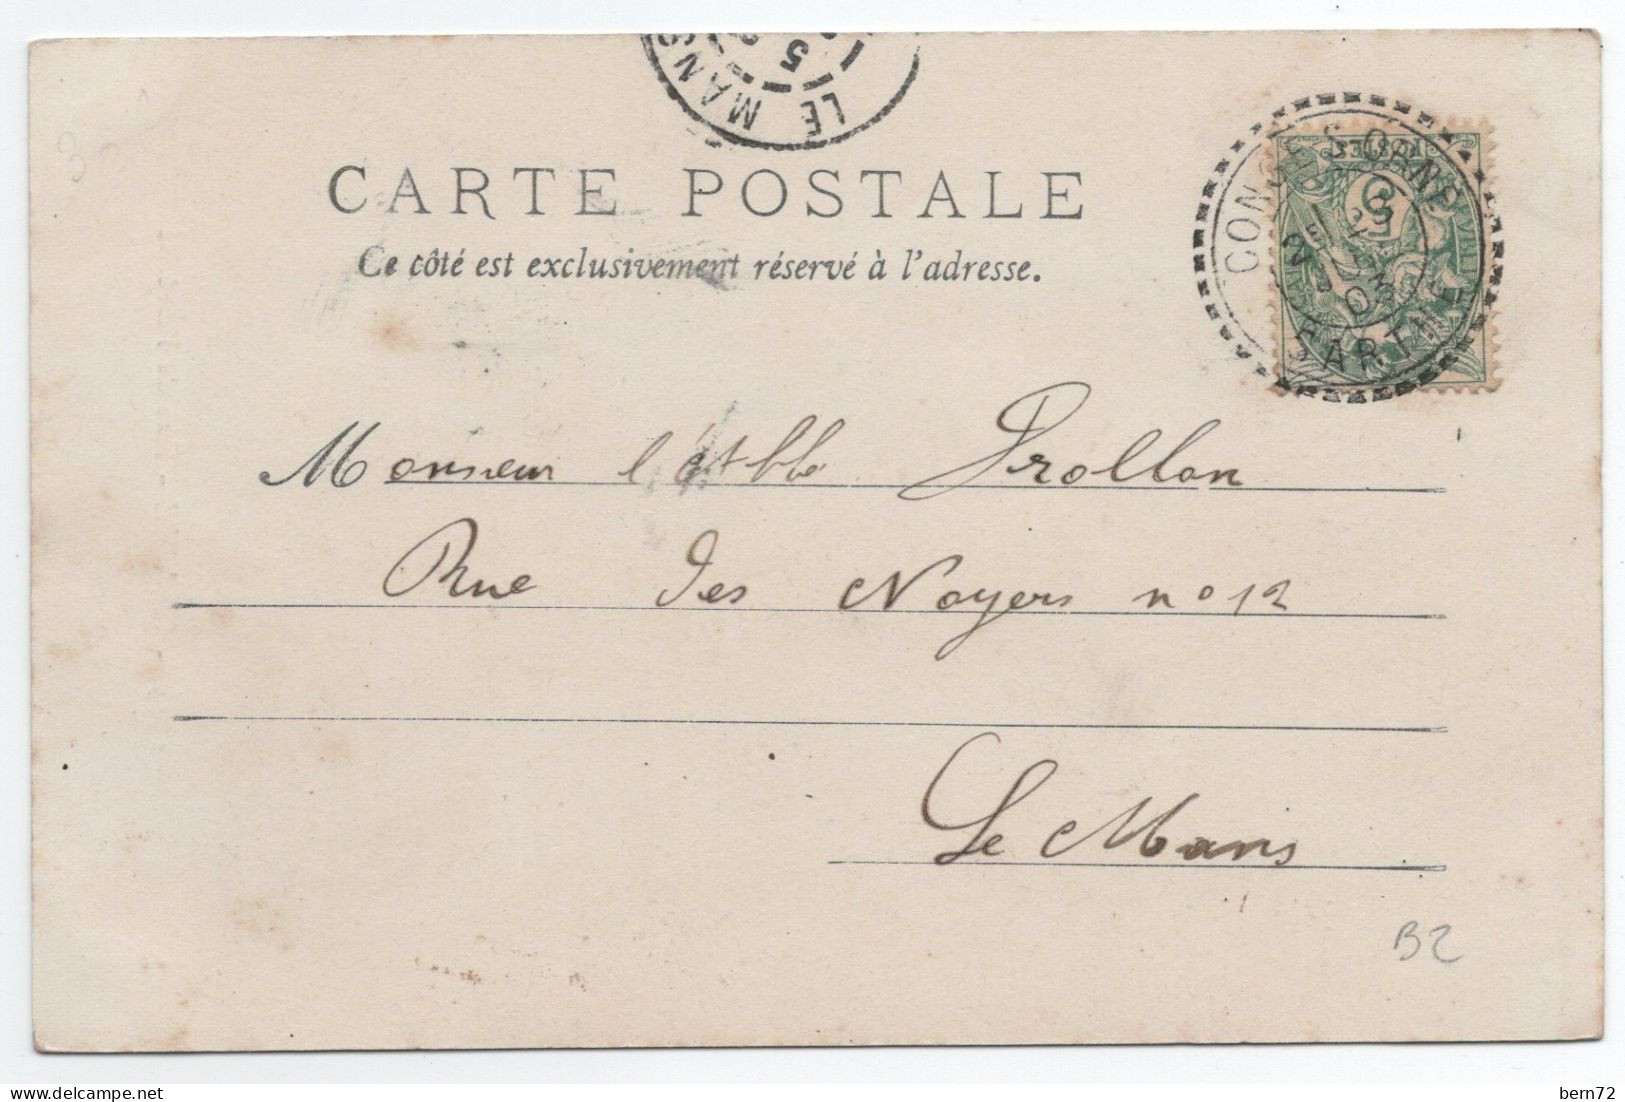 LE MANS
5
CARTE POSTALE
Ce côté est exclusivement réservé à l'adresse.
CONGE S ORNE
SARTHE
03
POSTES
5
Monsieur l'Abbé Prollon
Rue des Noyers no 12
Le Mans
B2
bern72